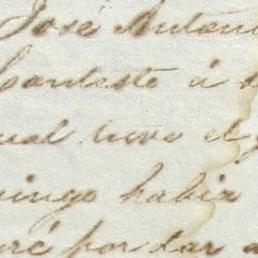 José Antonio
Contesto á
ual tuve el
mingo habia
aré por dar a